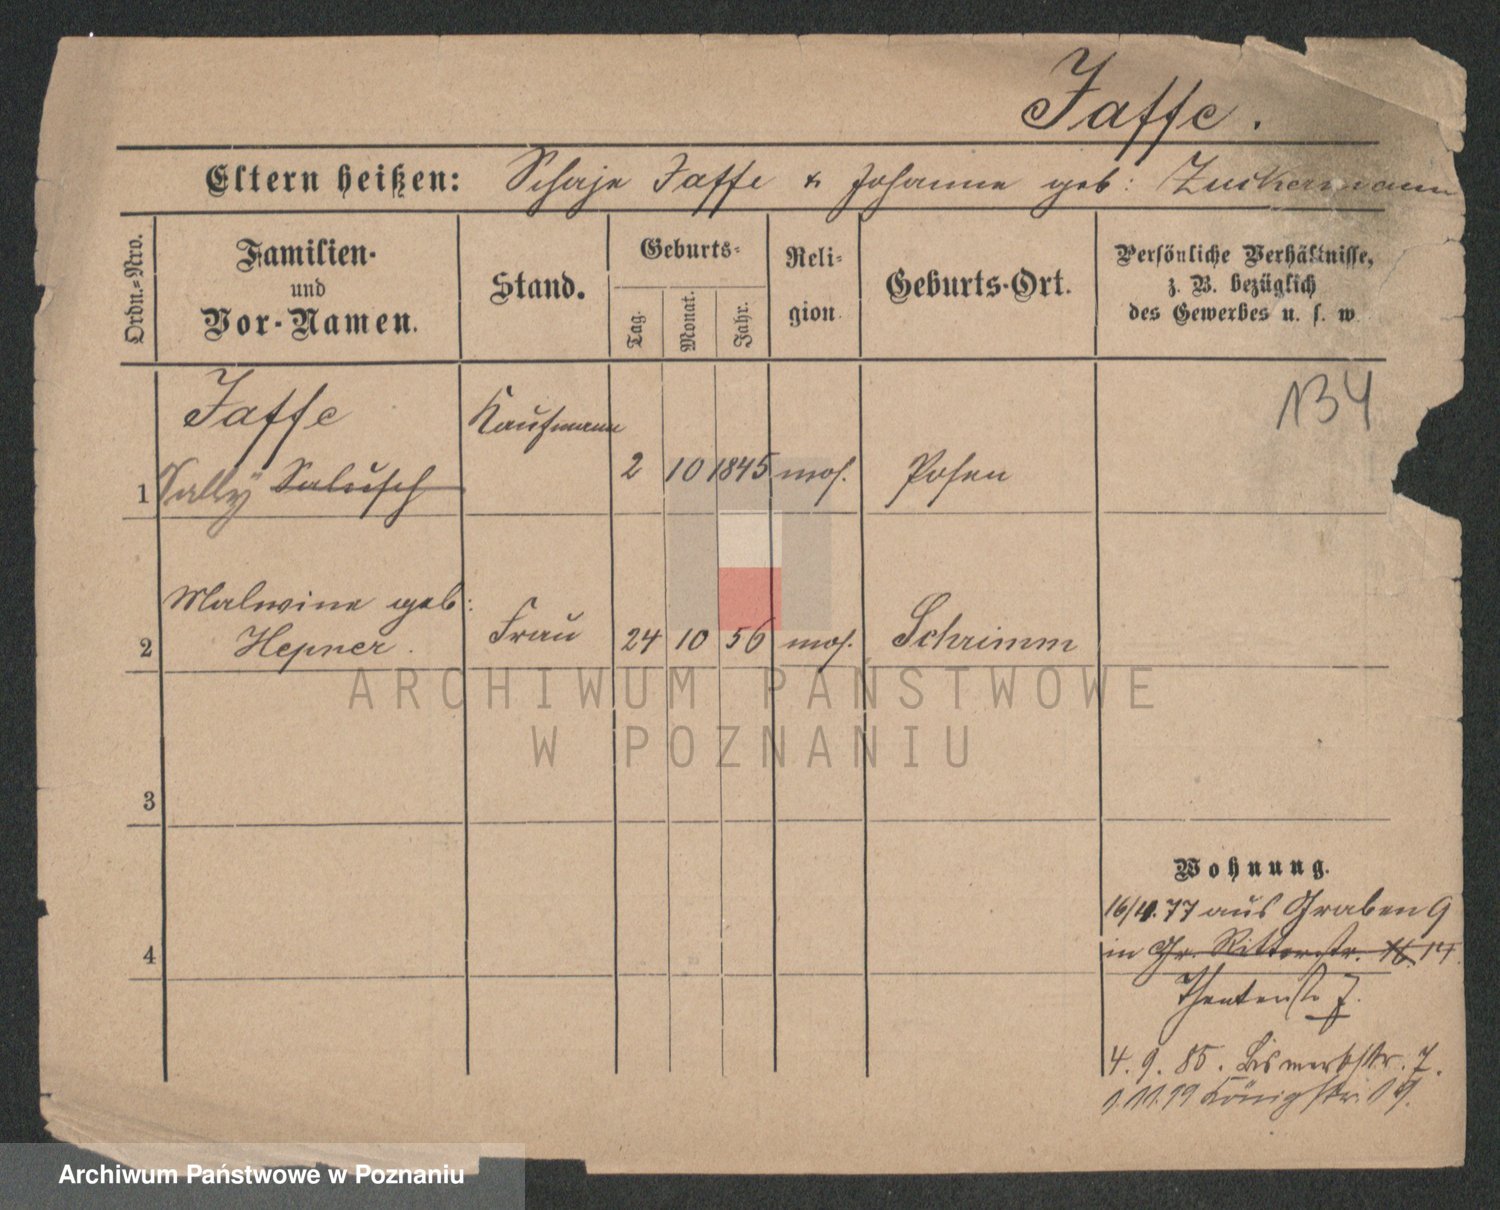 Jaffe.
Eltern heißen: Schaje Jaffe & Johanne geb: Zuckermann
Ordn.-Nro.
Familien-
und
Vor-Namen.
Stand.
Geburts-
Tag.
Monat.
Jahr.
Reli-
gion.
Geburts-Ort.
Persönliche Verhältnisse,
z. B. bezüglich
des Gewerbes u. s. w.
134
Jaffe Kaufmann
1 Sally Salusch 2 10 1845 mos. Posen
Malwine geb:
2 Hepner. Frau 24 10 56 mos. Schrimm
3
4
Wohnung.
16/4.77 aus Graben 9
in Gr. Ritterstr. 16.17.
Theaterstr 7.
4.9.85. Bismarkstr. 7.
1.11.99 Königstr. 19.
ARCHIWUM PAŃSTWOWE
W POZNANIU
Archiwum Państwowe w Poznaniu